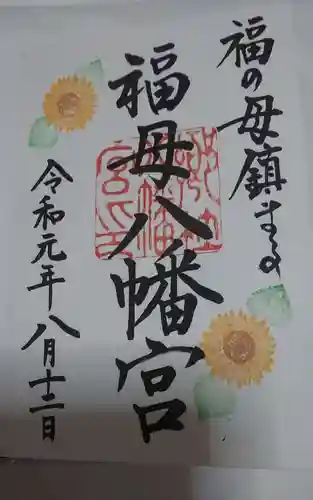 福の母鎮まる
福母八幡宮
令和元年八月十二日